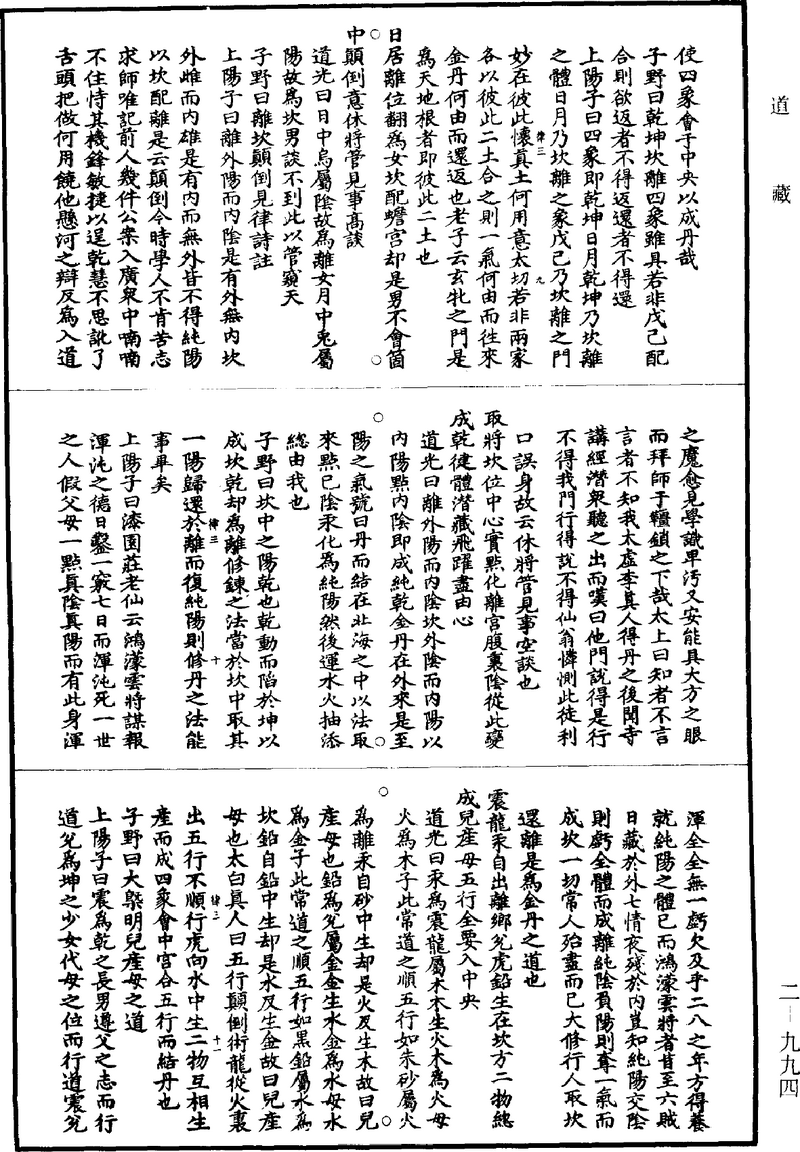 道藏
使四象會于中央以成丹哉
子野曰乾坤坎離四象雖具若非戊己配
合則欲返者不得返還者不得還
上陽子曰四象即乾坤日月乾坤乃坎離
之體日月乃坎離之象戊己乃坎離之門
妙在彼此懷真土何用意太切若非兩家
律三
九
各以彼此二土合之則一氣何由而往來
金丹何由而還返也老子云玄牝之門是
為天地根者即彼此二土也
日居離位翻為女坎配蟾宮却是男不會箇
中顛倒意休將管見事高談
道光曰日中烏屬陰故為離女月中兔屬
陽故為坎男談不到此以管窺天
子野曰離坎顛倒見律詩註
上陽子曰離外陽而內陰是有外無內坎
外雌而內雄是有內而無外皆不得純陽
以坎配離是云顛倒今時學人不肯苦志
求師唯記前人幾件公案入廣衆中喃喃
不住恃其機鋒敏捷以逞乾慧不思訛了
舌頭把做何用饒他懸河之辯反為入道
之魔愈見學識卑汚又安能具大方之眼
而拜師于韁鎖之下哉太上曰知者不言
言者不知我太虛李真人得丹之後聞寺
講經潛衆聽之出而嘆曰他門說得是行
不得我門行得說不得仙翁憐惻此徒利
口誤身故云休將管見事空談也
取將坎位中心實點化離宮腹裏陰從此變
成乾健體潛藏飛躍盡由心
道光曰離外陽而內陰坎外陰而內陽以
內陽點內陰即成純乾金丹在外來是至
陽之氣號曰丹而結在北海之中以法取
來點已陰汞化為純陽然後運水火抽添
總由我也
子野曰坎中之陽乾也乾動而陷於坤以
成坎乾却為離修鍊之法當於坎中取其
一陽歸還於離而復純陽則修丹之法能
律三
十
事畢矣
上陽子曰漆園莊老仙云鴻濛雲將謀報
渾沌之德日鑿一竅七日而渾沌死一世
之人假父母一點真陰真陽而有此身渾
渾全全無一虧欠及乎二八之年方得養
就純陽之體已而鴻濛雲將者昔至六賊
日藏於外七情夜殘於內豈知純陽交陰
則虧全體而成離純陰負陽則奪一氣而
成坎一切常人殆盡而已大修行人取坎
還離是為金丹之道也
震龍汞自出離鄉兌虎鉛生在坎方二物總
成兒產母五行全要入中央
道光曰汞為震龍屬木木生火木為火母
火為木子此常道之順五行如朱砂屬火
為離汞自砂中生却是火反生木故曰兒
產母也鉛為兌屬金金生水金為水母水
為金子此常道之順五行如黑鉛屬水為
坎鉛自鉛中生却是水反生金故曰兒產
母也太白真人曰五行顛倒術龍從火裏
出五行不順行虎向水中生二物互相生
律三
十一
產而成四象會中宮合五行而結丹也
子野曰大槩明兒產母之道
上陽子曰震為乾之長男遵父之志而行
道兌為坤之少女代母之位而行道震兌
二-九九四